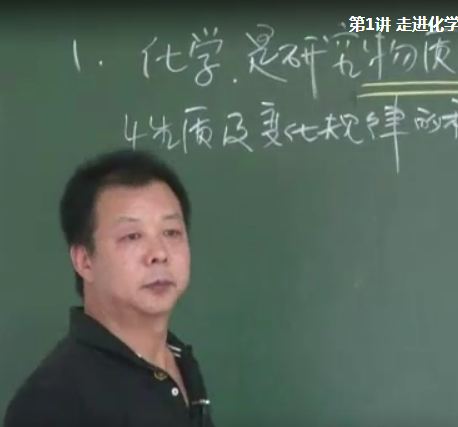 第1讲 走进化学
1. 化学.是研究物质
性质及变化规律的